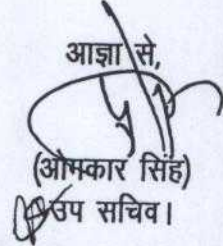 आज्ञा से,
(ओमकार सिंह)
उप सचिव।